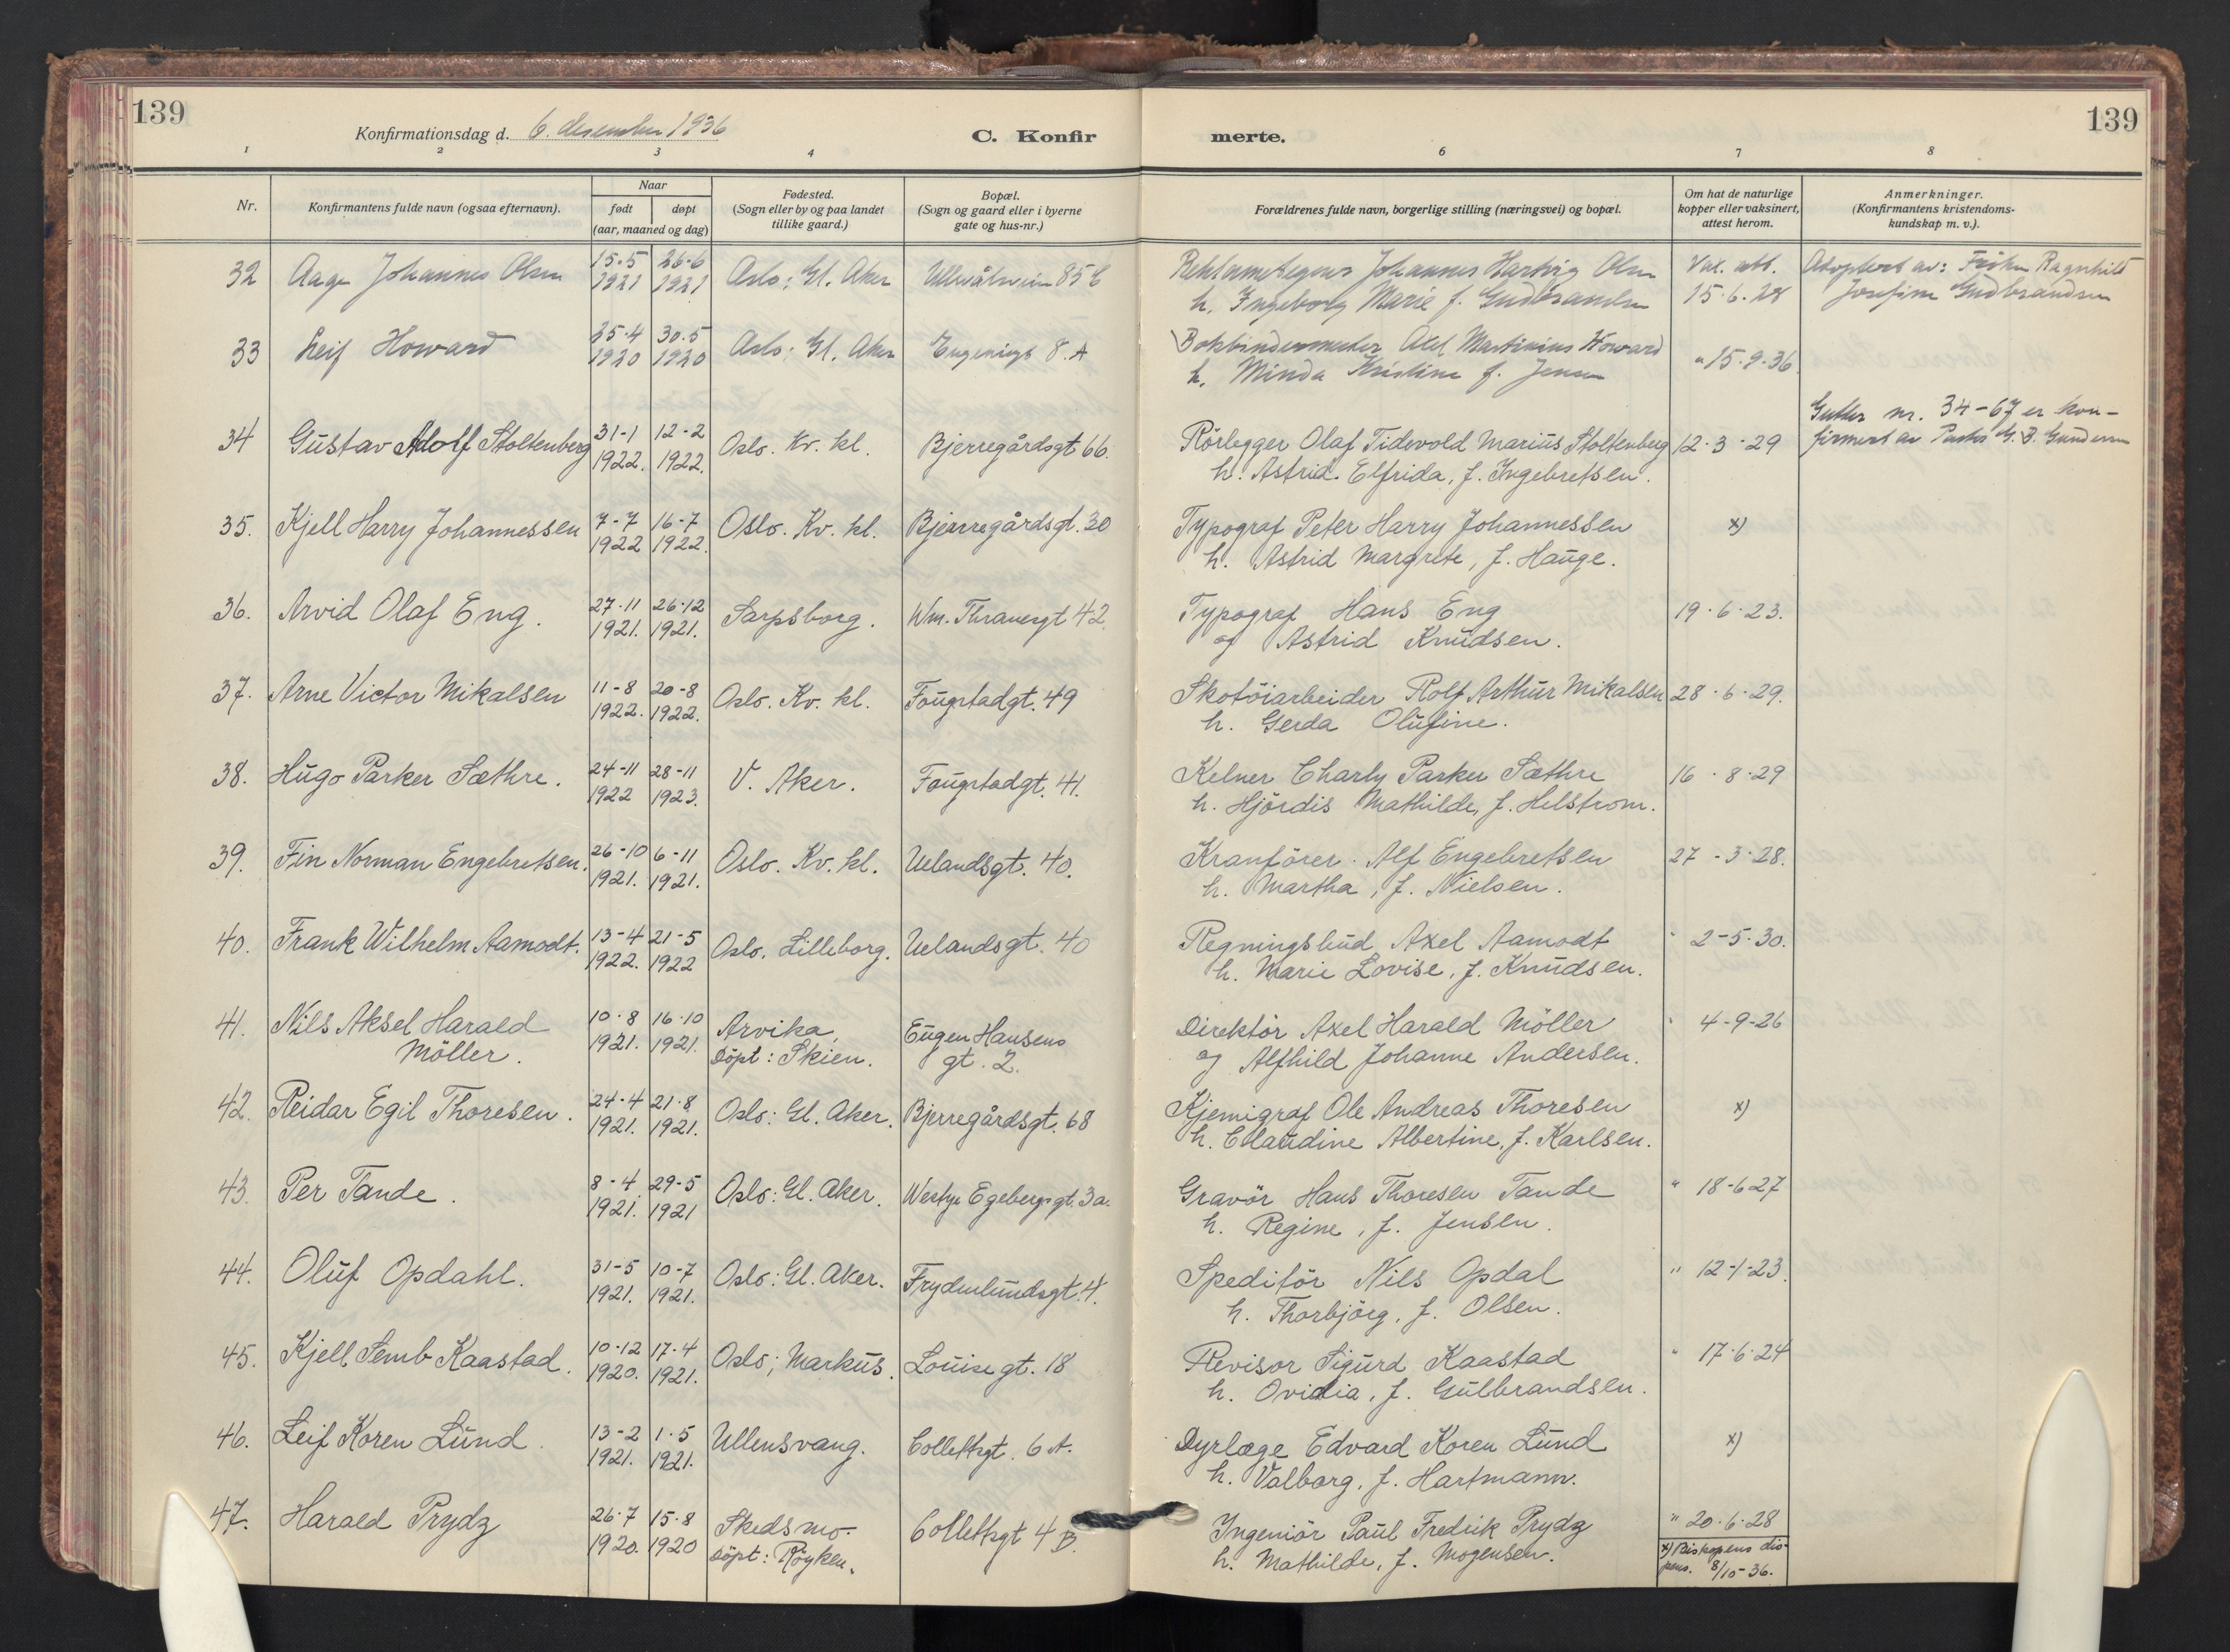 139
Konfirmationsdag d. 6. desember 1936
C. Konfir
merte.
139
1 2 3 4 6 7 8
Nr.
Konfirmantens fulde navn (ogsaa efternavn).
Naar
født døpt
(aar, maaned og dag)
Fødested.
(Sogn eller by og paa landet
tillike gaard.)
Bopæl.
(Sogn og gaard eller i byerne
gate og hus-nr.)
Forældrenes fulde navn, borgerlige stilling (næringsvei) og bopæl.
Om hat de naturlige
kopper eller vaksinert,
attest herom.
Anmerkninger.
(Konfirmantens kristendoms-
kundskap m. v.).
32 Aage Johannes Olsen 15.5 26.6 Oslo; Gl. Aker Johannes Hartvig Olsen Vak. att. Adoptert av: Frøken Ragnhild
1921 1921 h. Ingeborg Marie f. Gudbrandsen 15.6.28 Josefine Gudbrandsen
33 Leif Howard 25.4 30.5 Oslo; Gl. Aker Eugeniegt 8. A Bokbindermester Axel Martinius Howard " 15.9.36
1920 1920 h. Minda Kristine f. Jensen
Gutter nr. 34-67 er kon-
34 Gustav Adolf Stoltenberg 31-1 12-2 Oslo. Kv. kl. Bjerregårdsgt 66. Rörlegger Olaf Tidevold Marius Stoltenberg 12.3.29 firmert av G. B. Gundersen
1922. 1922. h. Astrid Elfrida, f. Ingebretsen.
35. Kjell Harry Johannessen 7-7 16-7 Oslo. Kv. kl. Bjerregårdsgt. 30 Typograf Peter Harry Johannessen x)
1922 1922. h. Astrid Margrete, f. Hauge.
36. Arvid Olaf Eng. 27.11 26.12 Sarpsborg. Wm. Thranesgt 42. Typograf Hans Eng 19.6.23.
1921. 1921. og Astrid Knudsen.
37. Arne Victor Mikalsen 11-8 20-8 Oslo. Kv. kl. Fougstadgt. 49 Skotöiarbeider Rolf Arthur Mikalsen 28.6.29.
1922. 1922. h. Gerda Olufine.
38. Hugo Parker Sæthre. 24-11 28-11 V. Aker. Fougstadgt. 41. Kelner Charly Parker Sæthre 16.8.29
1922 1923. h. Hjördis Mathilde, f. Helstrom.
39. Fin Norman Engebretsen. 26-10 6-11 Oslo. Kv. kl. Uelandsgt. 40. Kranförer. Alf Engebretsen 27-3.28.
1921. 1921. h. Martha, f. Nielsen.
40. Frank Wilhelm Aamodt. 13-4 21-5 Oslo. Lilleborg. Uelandsgt. 40 Regningsbud Axel Aamodt " 2-5.30.
1922. 1922 h. Marie Lovise, f. Knudsen.
41. Nils Aksel Harald 10.8 16.10 Arvika Eugen Hansens Direktör Axel Harald Möller " 4-9-26
Möller. 1921. 1921. Döpt: Skien. gt. 2. og Alfhild Johanne Andersen.
42. Reidar Egil Thoresen. 24.4 21.8 Oslo: Gl. Aker. Bjerregårdsgt. 68 Kjemigraf Ole Andreas Thoresen x)
1921. 1921. h. Claudine Albertine, f. Karlsen.
43. Per Tande. 8-4 29-5 Oslo: Gl. Aker. Westye Egebergsgt. 3a. Gravör Hans Thoresen Tande " 18-6 27
1921. 1921 h. Regine, f. Jensen.
44. Oluf Opdahl. 31-5 10-7 Oslo: Gl. Aker. Frydenlundsgt. 4. Speditör Nils Opdal " 12-1-23.
1921. 1921. h. Thorbjörg, f. Olsen.
45. Kjell Semb Kaastad. 10.12 17.4 Oslo; Markus. Louise gt. 18 Revisor Sigurd Kaastad " 17.6.24
1920. 1921. h. Ovidia, f. Gulbrandsen.
46. Leif Koren Lund. 13-2 1.5 Ullensvang. Collettsgt. 6 A. Dyrlæge Edvard Koren Lund x)
1921. 1921. h. Valborg, f. Hartmann.
47. Harald Prydz 26.7 15.8 Skedsmo. Collettsgt 4 B. Ingeniör Paul Fredrik Prydz " 20.6.28
1920. 1920 Döpt: Röyken. h. Mathilde, f. Mogensen.
x) Biskopens dis-
pens. 8/10-36.